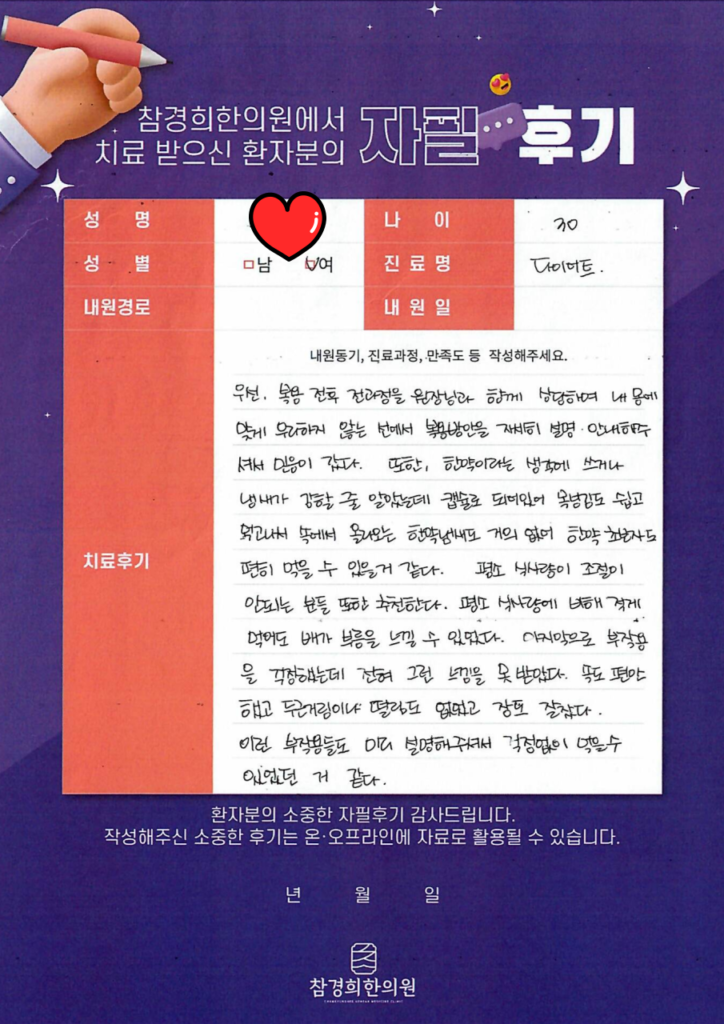 참경희한의원에서
치료 받으신 환자분의 자필 후기
성 명
나 이 30
성 별 남 여
진 료 명 다이어트.
내원경로
내 원 일
내원동기, 진료과정, 만족도 등 작성해주세요.
치료후기
우선, 복용 전후 전과정을 원장님과 함께 상담하며 내 몸에
맞게 무리하지 않는 선에서 복용방안을 자세히 설명·안내해주
셔서 믿음이 갔다. 또한, 한약이라는 생각에 쓰거나
냄새가 강할 줄 알았는데 캡슐로 되어있어 목넘김도 쉽고
먹고나서 속에서 올라오는 한약냄새도 거의 없어 한약 초보자도
편히 먹을 수 있을거 같다. 평소 식사량이 조절이
안되는 분들 또한 추천한다. 평소 식사량에 비해 적게
먹어도 배가 부름을 느낄 수 있었다. 마지막으로 부작용
을 걱정했는데 전혀 그런 느낌을 못 받았다. 속도 편안
했고 두근거림이나 떨림도 없었고 잠도 잘잤다.
이런 부작용들도 미리 설명해주셔서 걱정없이 먹을수
있었던 거 같다.
환자분의 소중한 자필후기 감사드립니다.
작성해주신 소중한 후기는 온·오프라인에 자료로 활용될 수 있습니다.
년 월 일
참경희한의원